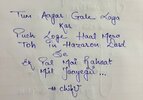 Tum Aagar Gale Laga
Kar
Puch Loge Haal Mera
Toh Tu Hazaron Dard
Se
Ek Pal Mai Rahaat
Mil Jayegii ...
# chiku